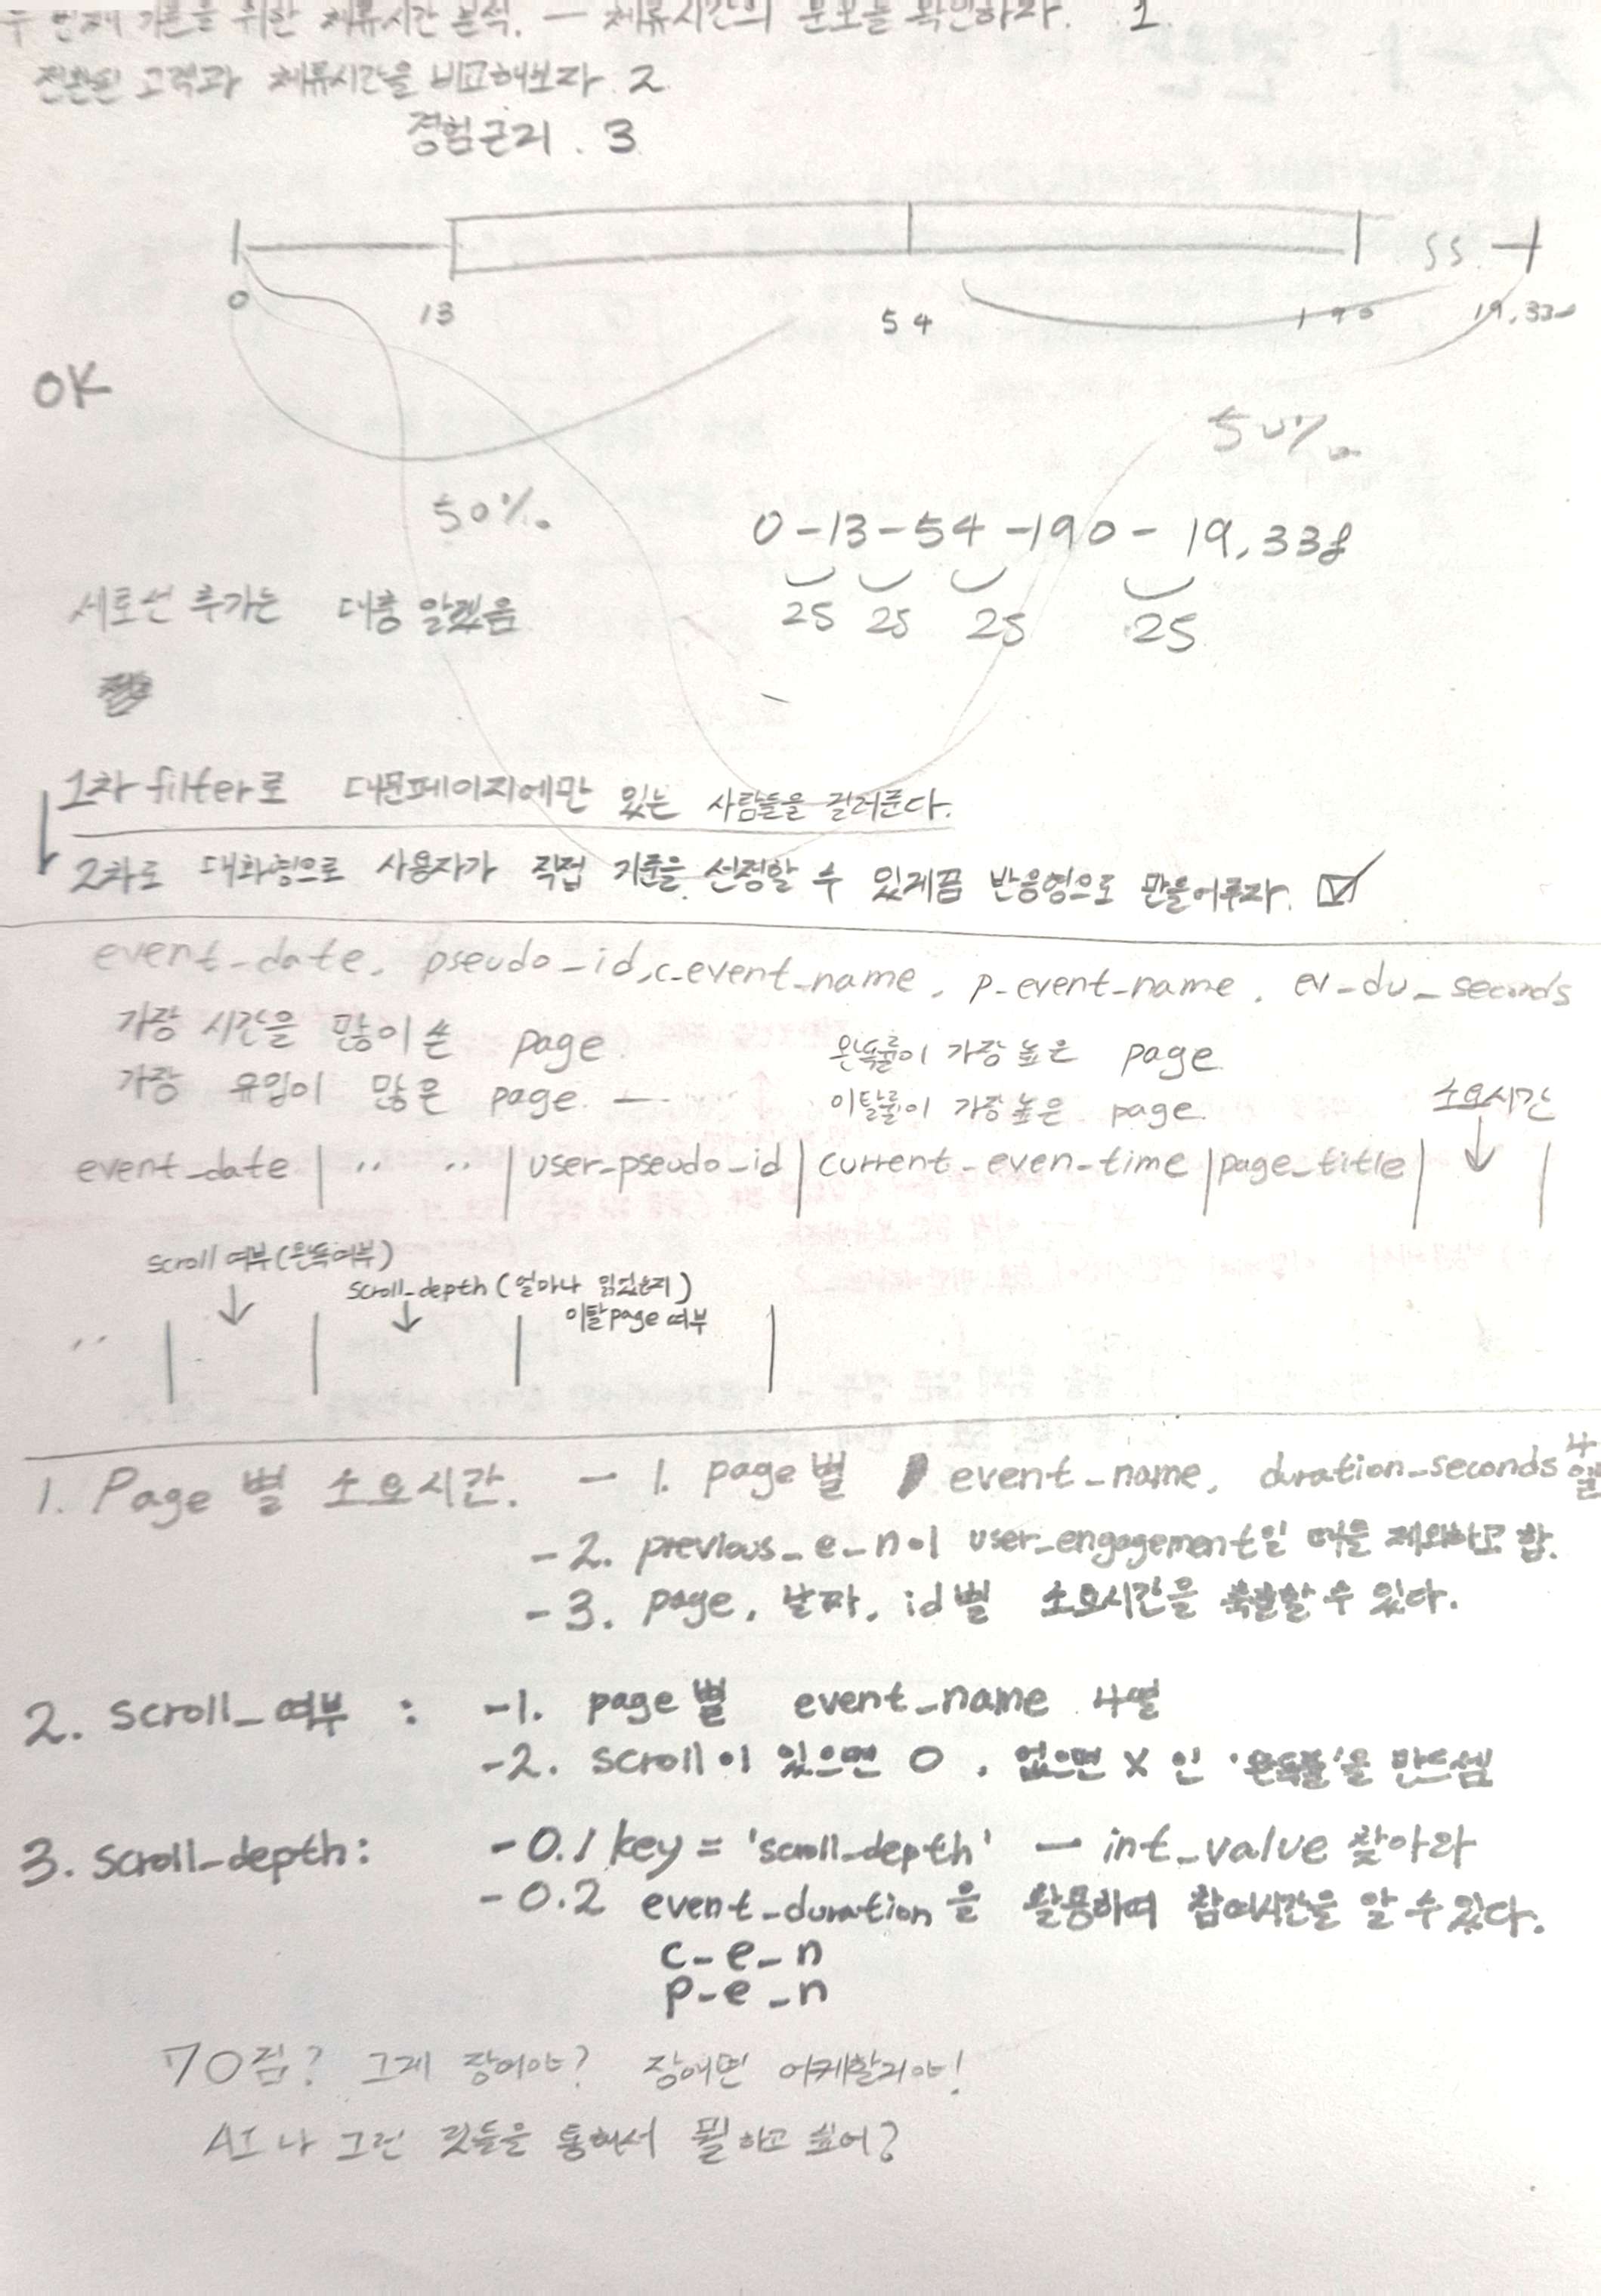 두 번째 기준을 위한 체류시간 분석. — 체류시간의 분포를 확인하자. 1.
전환된 고객과 체류시간을 비교해보자. 2
경험근거. 3
0 13 54 190 19,33
OK
50%
50%
0-13-54-190-19,338
25 25 25 25
세로선 추가는 대충 알겠음
1차 filter로 대문페이지에만 있는 사람들을 걸러준다.
2차로 대화형으로 사용자가 직접 기준을 선정할 수 있게끔 반응형으로 만들어주자.
event_date, pseudo_id, c_event_name, p_event_name, ev_du_seconds
가장 시간을 많이 쓴 page.
완독률이 가장 높은 page
가장 유입이 많은 page. —
이탈률이 가장 높은 page.
소요시간
event_date | " " | user_pseudo_id | current_even_time | page_title |
scroll 여부(완독여부)
scroll_depth (얼마나 읽었는지)
이탈page 여부
1. Page 별 소요시간. — 1. page별 event_name, duration_seconds 4열
-2. previous_e_n이 user_engagement일 때를 제외하고 함.
-3. page, 날짜, id별 소요시간을 할 수 있다.
2. scroll_여부 : -1. page별 event_name 4열
-2. scroll이 있으면 O, 없으면 X 인 '완독률'을 만드셈
3. scroll_depth: -0.1 key = 'scroll_depth' — int_value 찾아라
-0.2 event_duration을 활용하여 참여시간을 알 수 있다.
c_e_n
p_e_n
70점? 그게 장애야? 장애면 어케할거야!
AI나 그런 것들을 통해서 뭘 하고 싶어?